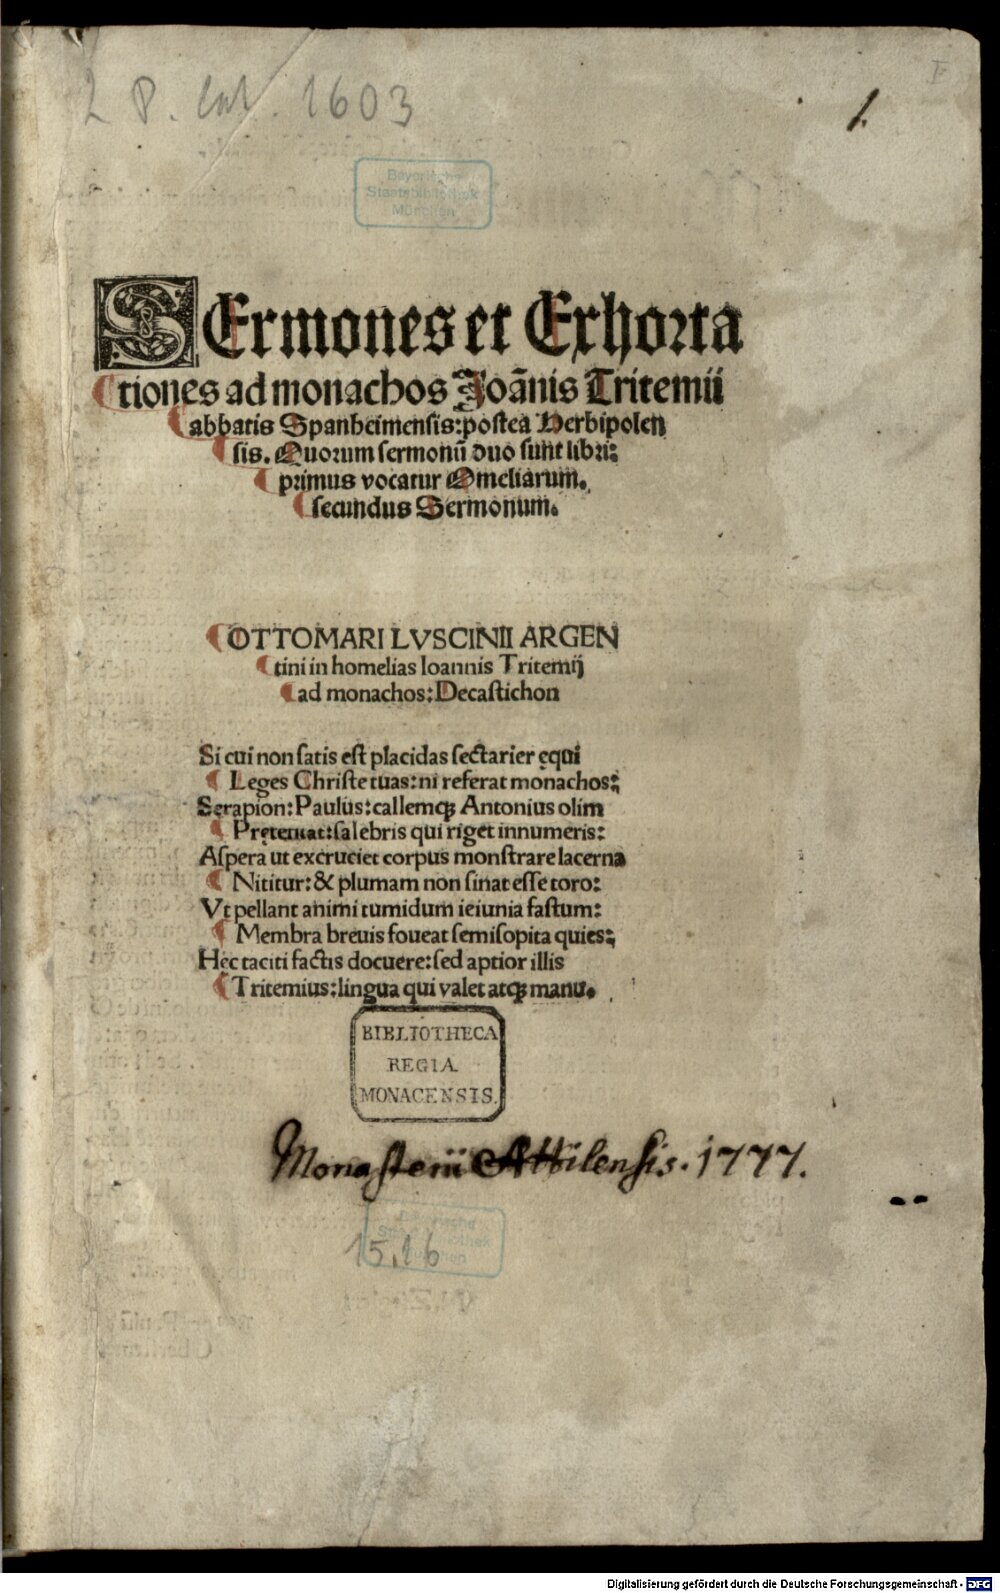 2 P. lat. 1603
1.
I
Bayerische
Staatsbibliothek
München
SErmones et Exhorta
tiones ad monachos Joãnis Tritemii
abbatis Spanheimensis: postea Herbipolen
sis. Quorum sermonũ duo sunt libri:
primus vocatur Omeliarum.
secundus Sermonum.
OTTOMARI LVSCINII ARGEN
tini in homelias Ioannis Tritemij
ad monachos: Decastichon
Si cui non satis est placidas sectarier ęqui
Leges Christe tuas: ni referat monachos:
Serapion: Paulus: callemqꝫ Antonius olim
Pręteruat: salebris qui riget innumeris:
Aspera ut excruciet corpus monstrare lacerna
Nititur: & plumam non sinat esse toro:
Vt pellant animi tumidum ieiunia fastum:
Membra breuis foueat semisopita quies:
Hęc taciti factis docuere: sed aptior illis
Tritemius: lingua qui valet atqꝫ manu.
BIBLIOTHECA
REGIA
MONACENSIS.
Monasterii Attilensis. 1777.
15.16
Digitalisierung gefördert durch die Deutsche Forschungsgemeinschaft - DFG